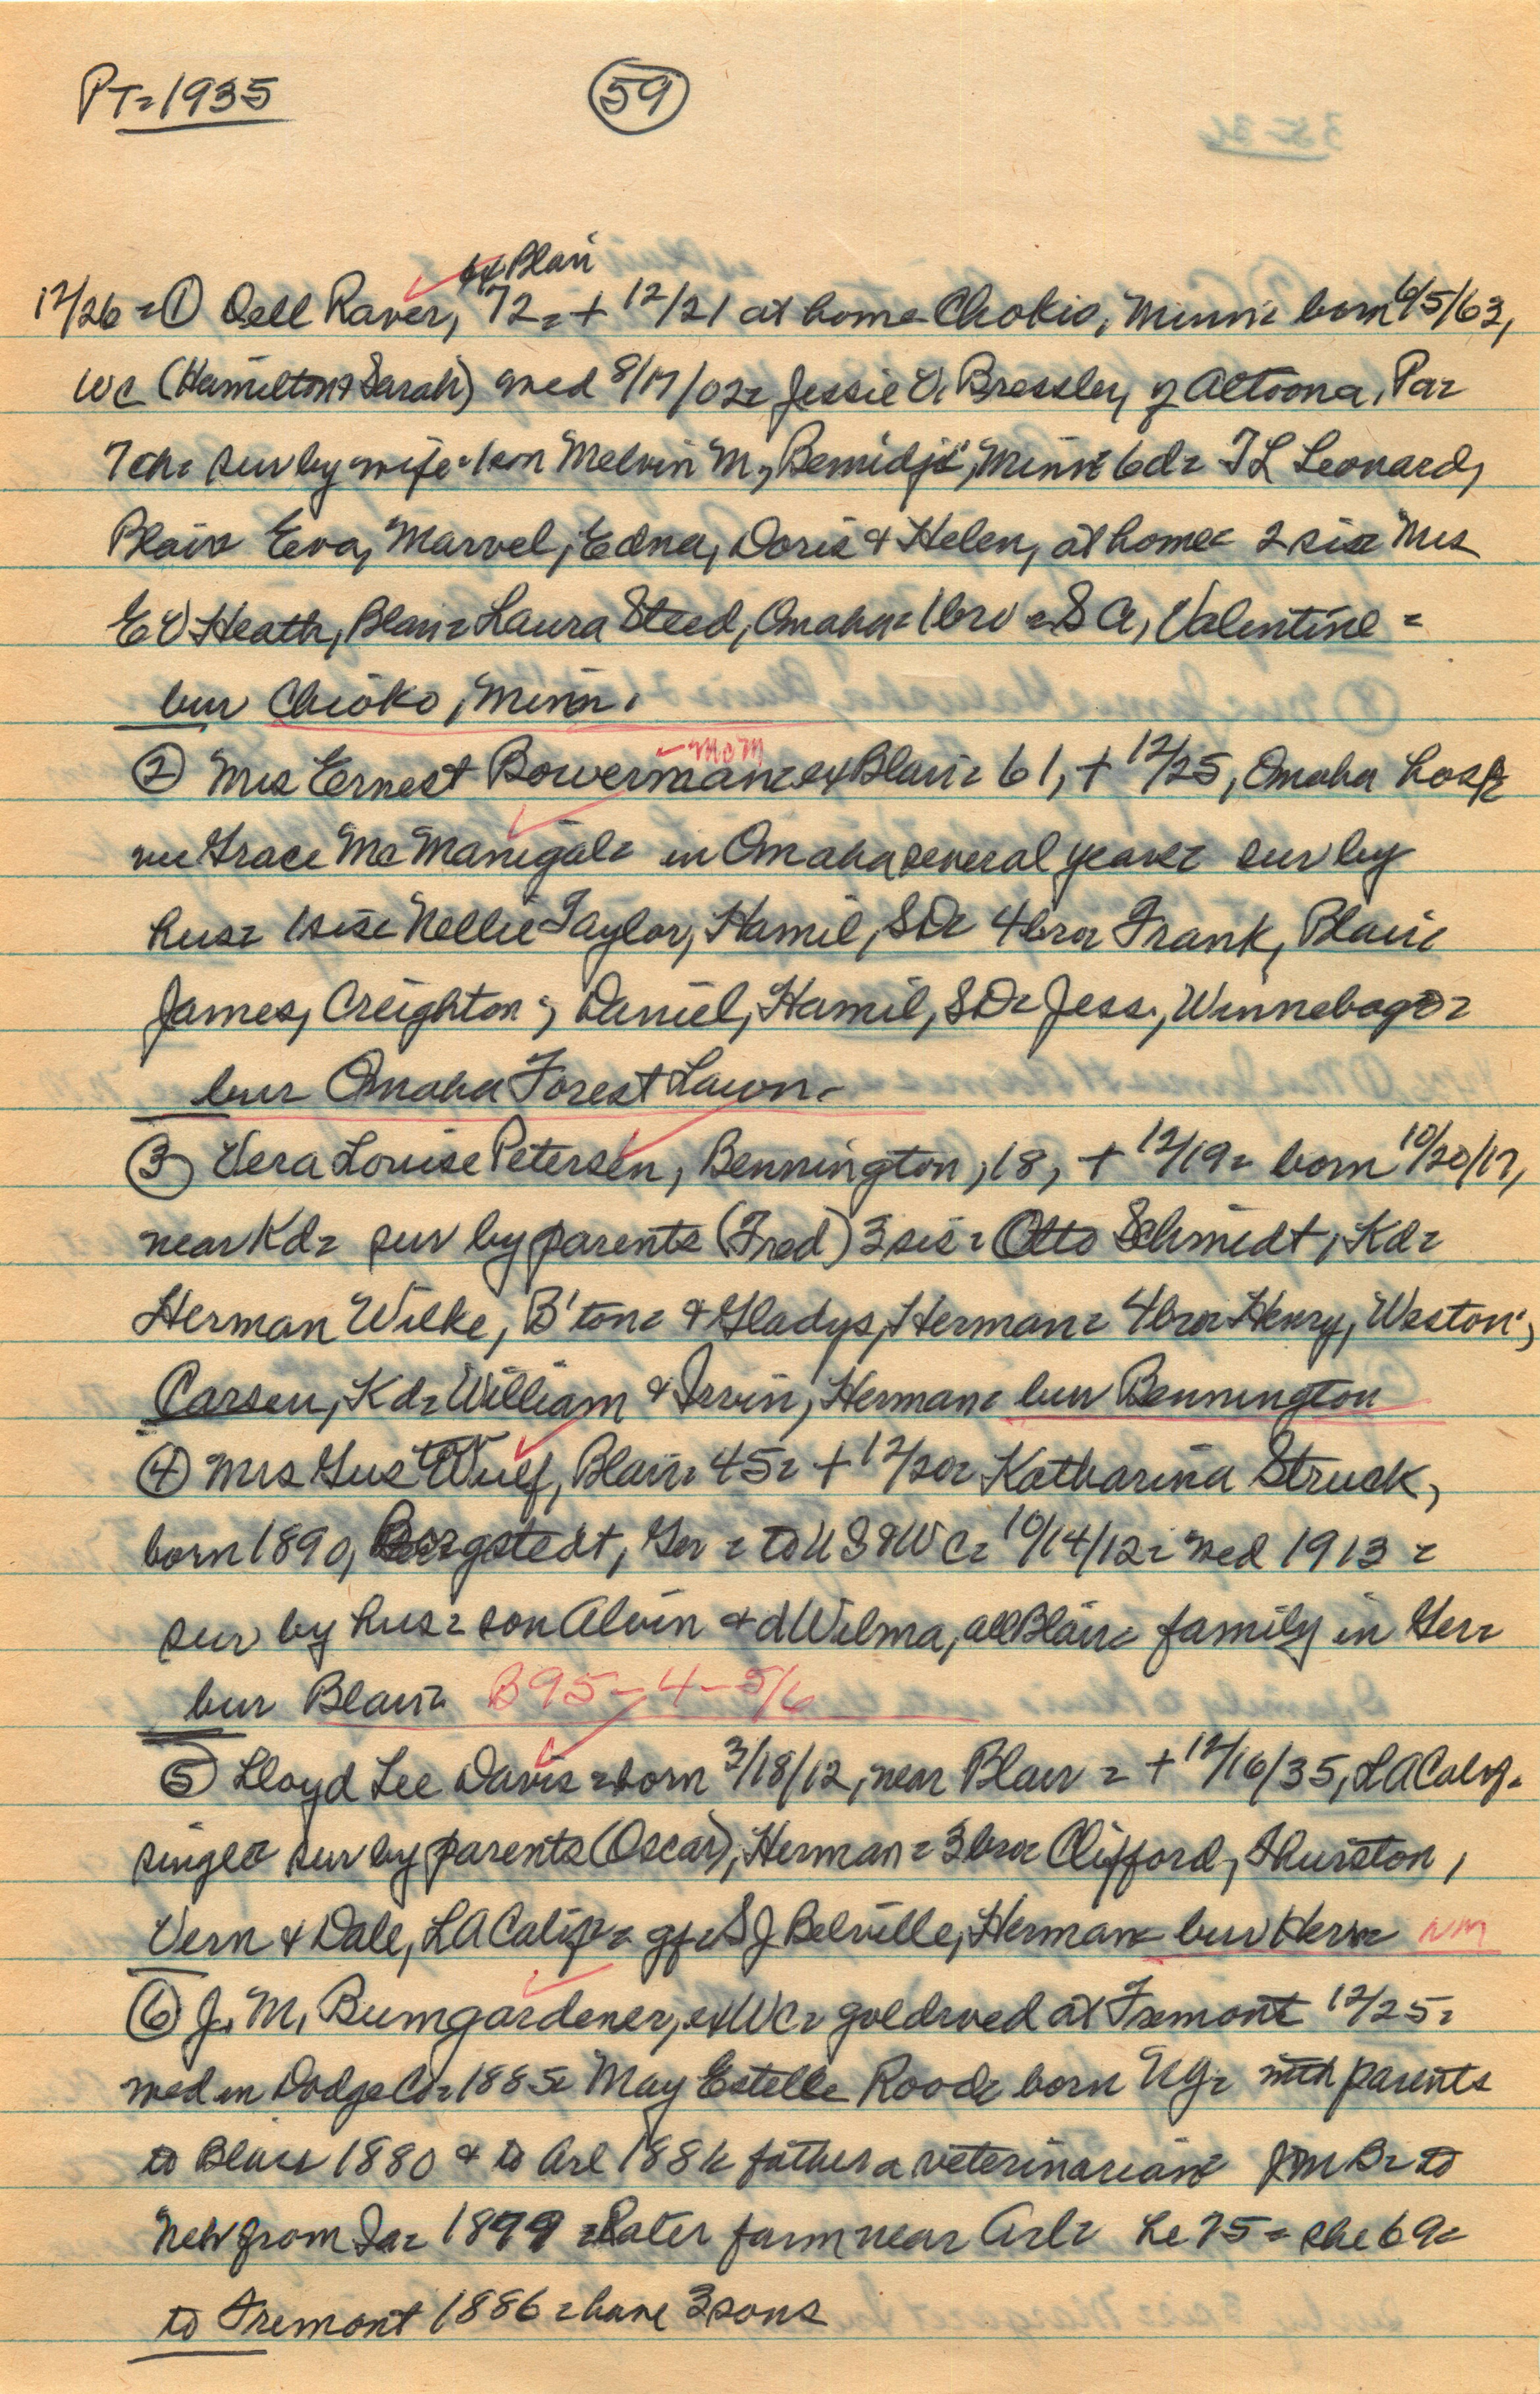 PT=1935
59
ex Blair
12/26 = ① Dell Raver, 72 = + 12/21 at home Chokio, Minn = born 6/5/63,
WC (Hamilton & Sarah) wed 8/17/02 = Jessie V. Bressler, of Altoona, Pa =
7 ch = sur by wife = 1 son Melvin M, Bemidji, Minn = 6 d = T L Leonard,
Blair = Eva, Marvel, Edna, Doris & Helen, at home = 2 sis = Mrs
E V Heath, Blair = Laura Steed, Omaha = 1 bro = S A, Valentine =
bur Chioko, Minn.
mom
② Mrs Ernest Bowerman = ex Blair = 61, + 12/25, Omaha hosp =
nee Grace McManigal = in Omaha several years = sur by
hus = 1 sis = Nellie Taylor, Hamil, SD = 4 bro = Frank, Blair =
James, Creighton; Daniel, Hamil, SD = Jess, Winnebago =
bur Omaha Forest Lawn =
③ Vera Louise Petersen, Bennington, 18, + 12/19 = born 10/20/17,
near Kd = sur by parents (Fred) 3 sis = Otto Schmidt, Kd =
Herman Wilke, B'ton = & Gladys, Herman = 4 bro = Henry, Weston;
Carsen, Kd = William & Irvin, Herman = bur Bennington
④ Mrs Gus Wulf, Blair = 45 = + 12/20 = Katharina Struck,
born 1890, Borgstedt, Ger = to US & WC = 10/14/12 = wed 1913 =
sur by hus = son Alvin & d Wilma, all Blair = family in Ger =
bur Blair = B95-4-5/6
⑤ Lloyd Lee Davis = born 3/18/12, near Blair = + 12/16/35, LA Calif =
single = sur by parents (Oscar), Herman = 3 bro = Clifford, Thurston,
Vern & Dale, LA Calif = gf = S J Belville, Herman = bur Herm = NM
⑥ J. M. Bumgardener, ex WC = gold wed at Fremont 12/25 =
wed in Dodge Co = 1885 = May Estelle Rood = born NY = with parents
to Blair 1880 & to Arl 1881 = father a veterinarian = J M B = to
Neb from Ia = 1879 = later farm near Arl = he 75 = she 69 =
to Fremont 1886 = have 3 sons